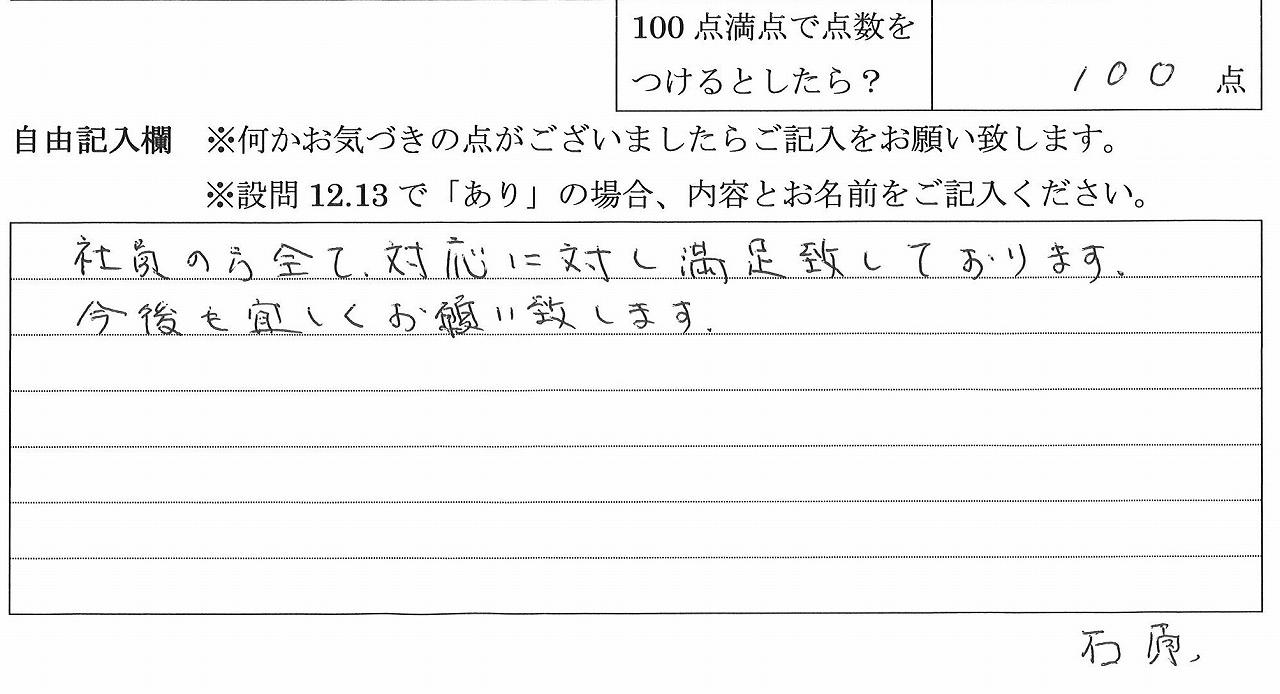 100点満点で点数を
つけるとしたら? 100 点
自由記入欄 ※何かお気づきの点がございましたらご記入をお願い致します。
※設問12.13で「あり」の場合、内容とお名前をご記入ください。
社員の方全て、対応に対し満足致しております。
今後も宜しくお願い致します。
石原